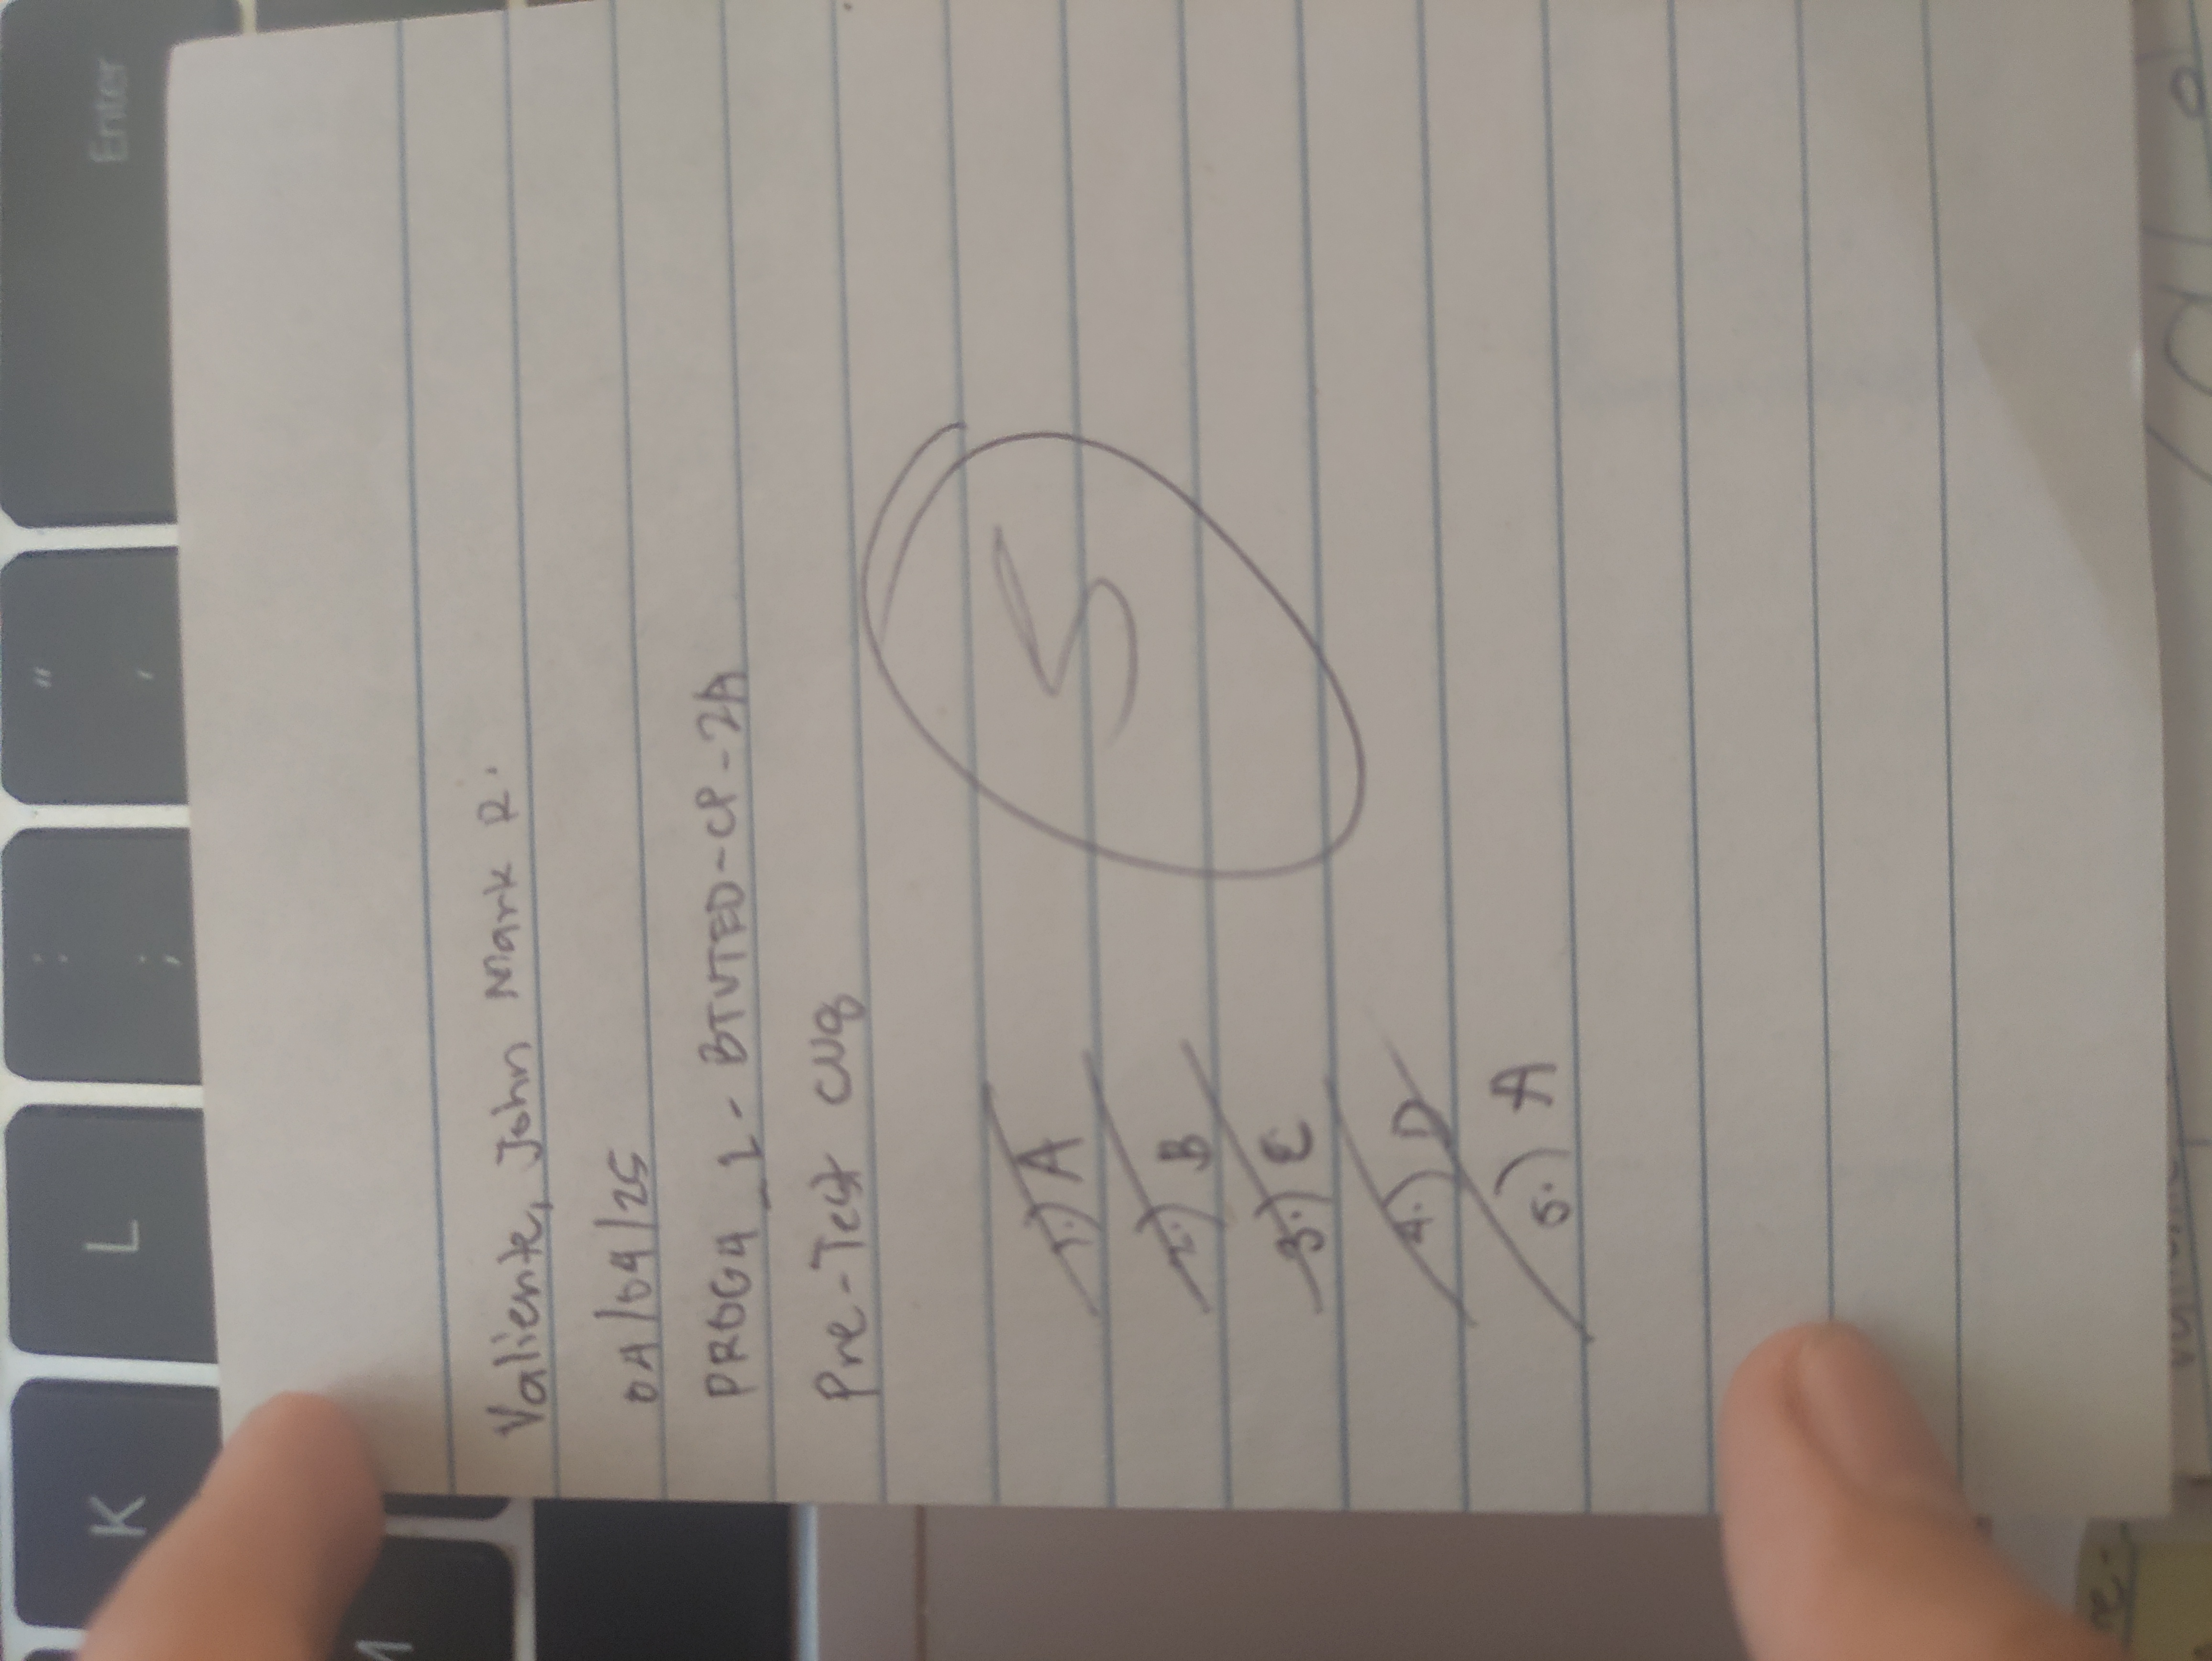 K L : ; " ' Enter
M
Valiente, John Mark R.
04/04/25
PROG4_1-BTVTED-CP-2A
Pre-Test CU8
1.) A
2.) B
3.) E
4.) D
5.) A
5